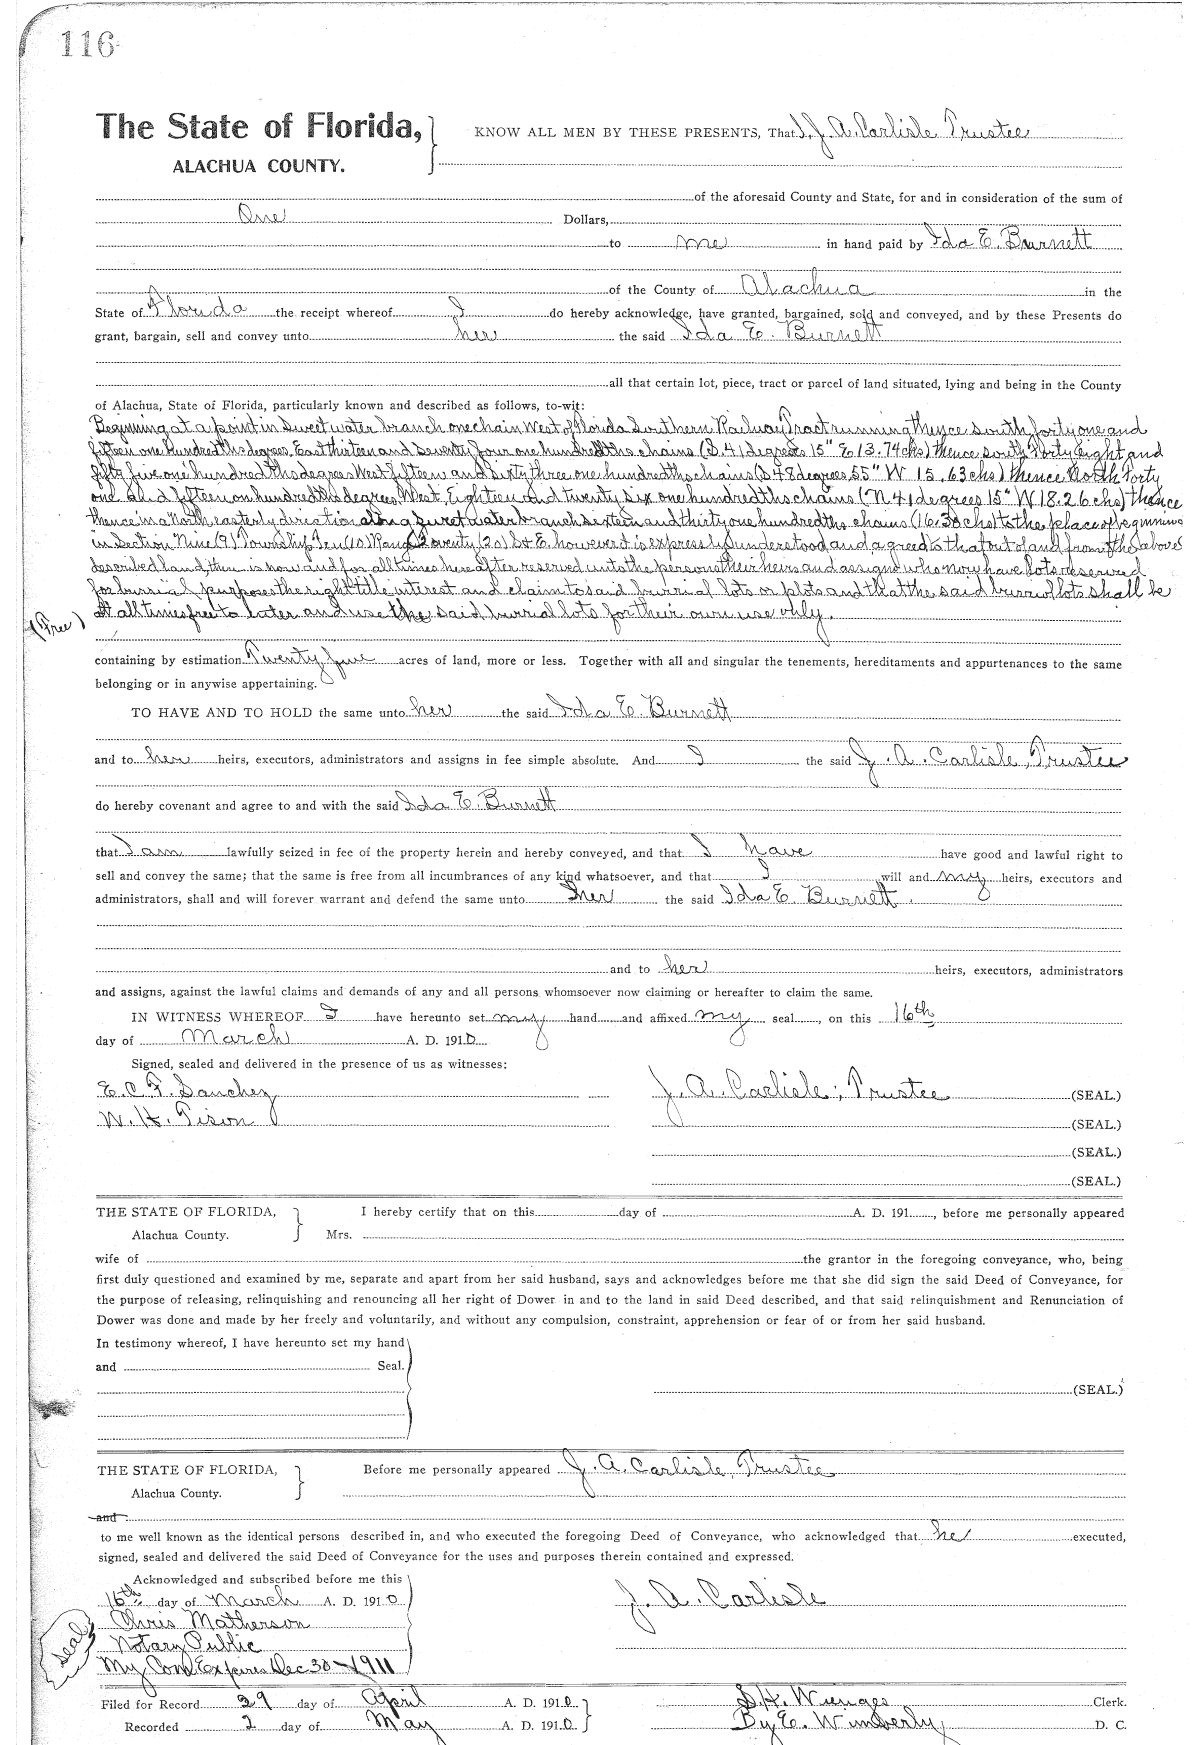 116
The State of Florida, KNOW ALL MEN BY THESE PRESENTS, That I, J. A. Carlisle Trustee
ALACHUA COUNTY.
of the aforesaid County and State, for and in consideration of the sum of
One Dollars,
to me in hand paid by Ida E. Burnett
of the County of Alachua in the
State of Florida the receipt whereof I do hereby acknowledge, have granted, bargained, sold and conveyed, and by these Presents do
grant, bargain, sell and convey unto her the said Ida E. Burnett
all that certain lot, piece, tract or parcel of land situated, lying and being in the County
of Alachua, State of Florida, particularly known and described as follows, to-wit:
Beginning at a point in Sweet water branch one chain West of Florida Southern Railway Tract running thence south forty one and
fifteen one hundredths degrees East thirteen and seventy four one hundredths chains (S. 41 degrees 15" E 13.74 chs) thence south Forty eight and
fifty five one hundredths degrees West fifteen and sixty three one hundredths chains (S 48 degrees 55" W 15.63 chs) thence North Forty
one and fifteen on hundredths degrees West Eighteen and twenty six one hundredths chains (N. 41 degrees 15" W 18.26 chs) thence
thence in a North easterly direction along sweet water branch sixteen and thirty one hundredths chains (16.30 chs) to the place of beginning
in Section Nine (9) Township Ten (10) Range Twenty (20) S & E. however it is expressly understood and agreed that out of and from the above
described land, there is now and for all times here after reserved unto the persons their heirs and assigns who now have lots reserved
for burrial purposes the right title interest and claim to said burrial lots or plots and that the said burrial lots shall be
at all times free to enter and use the said burrial lots for their own use only.
(Free)
containing by estimation Twenty five acres of land, more or less. Together with all and singular the tenements, hereditaments and appurtenances to the same
belonging or in anywise appertaining.
TO HAVE AND TO HOLD the same unto her the said Ida E. Burnett
and to her heirs, executors, administrators and assigns in fee simple absolute. And I the said J. A. Carlisle, Trustee
do hereby covenant and agree to and with the said Ida E. Burnett
that I am lawfully seized in fee of the property herein and hereby conveyed, and that I have have good and lawful right to
sell and convey the same; that the same is free from all incumbrances of any kind whatsoever, and that I will and my heirs, executors and
administrators, shall and will forever warrant and defend the same unto her the said Ida E. Burnett.
and to her heirs, executors, administrators
and assigns, against the lawful claims and demands of any and all persons whomsoever now claiming or hereafter to claim the same.
IN WITNESS WHEREOF I have hereunto set my hand and affixed my seal, on this 16th
day of March A. D. 1910.
Signed, sealed and delivered in the presence of us as witnesses:
E. C. F. Sanchez J. A. Carlisle; Trustee (SEAL.)
W. H. Tison (SEAL.)
(SEAL.)
(SEAL.)
THE STATE OF FLORIDA, I hereby certify that on this day of A. D. 191 , before me personally appeared
Alachua County. Mrs.
wife of the grantor in the foregoing conveyance, who, being
first duly questioned and examined by me, separate and apart from her said husband, says and acknowledges before me that she did sign the said Deed of Conveyance, for
the purpose of releasing, relinquishing and renouncing all her right of Dower in and to the land in said Deed described, and that said relinquishment and Renunciation of
Dower was done and made by her freely and voluntarily, and without any compulsion, constraint, apprehension or fear of or from her said husband.
In testimony whereof, I have hereunto set my hand
and Seal.
(SEAL.)
THE STATE OF FLORIDA, Before me personally appeared J. A. Carlisle, Trustee
Alachua County.
and
to me well known as the identical persons described in, and who executed the foregoing Deed of Conveyance, who acknowledged that he executed,
signed, sealed and delivered the said Deed of Conveyance for the uses and purposes therein contained and expressed.
Acknowledged and subscribed before me this
16th day of March A. D. 1910 J. A. Carlisle
Chris Matherson
Notary Public
seal
My Com Expires Dec 30 - 1911
Filed for Record 29 day of April A. D. 1910. S. H. Wienges Clerk.
Recorded 2 day of May A. D. 1910. By E. Wimberly D. C.